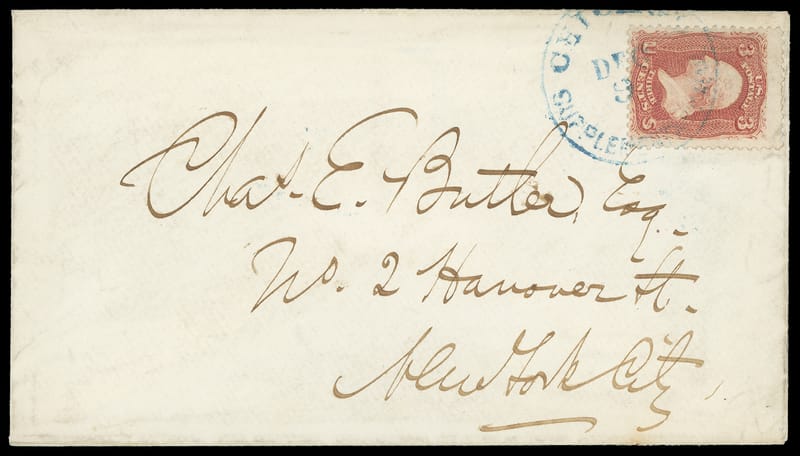 DE
SUPPLE
U
3
THREE CENTS
U.S. POSTAGE
S
3
Chas. E. Butler, Esq.
No. 2 Hanover St.
New York City,